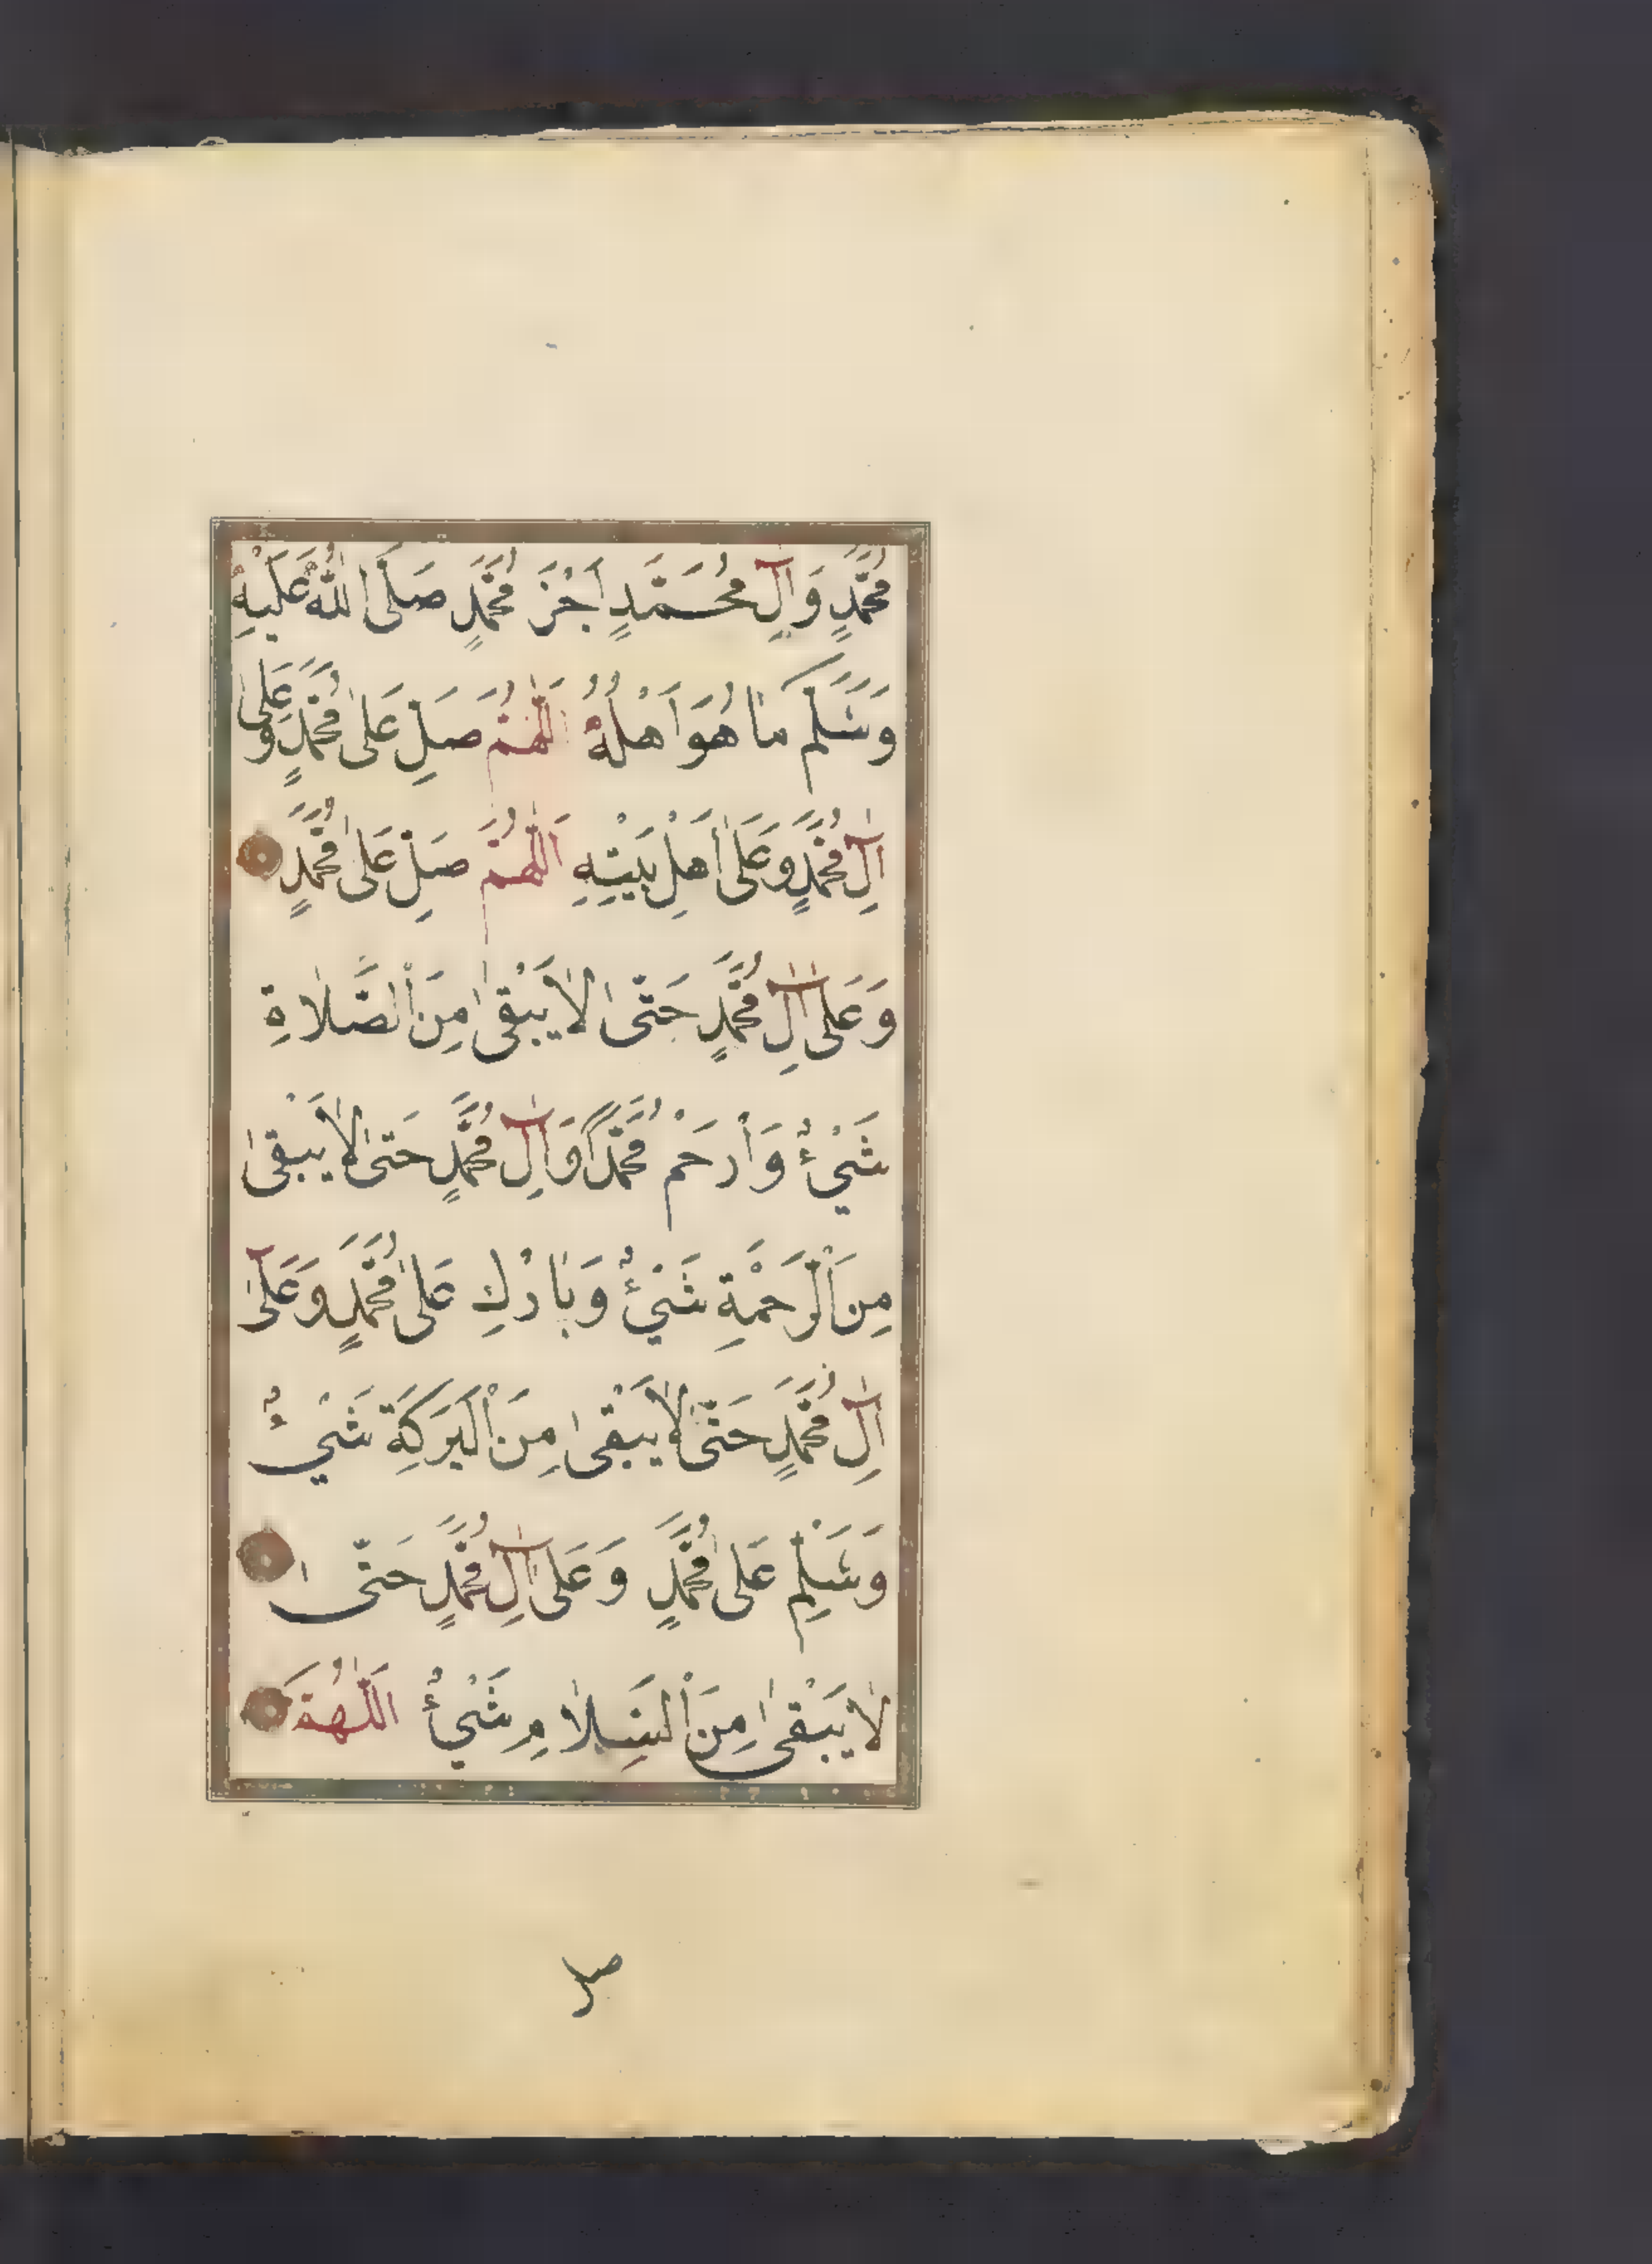 مُحَمَّدٍ وَآلِ مُحَمَّدٍ اَجْزِ مُحَمَّدٍ صَلَّى اللّٰهُ عَلَيْهِ
وَسَلَّمَ مَا هُوَ اَهْلُهُ اَللّٰهُمَّ صَلِّ عَلٰى مُحَمَّدٍ وَعَلٰى
آلِ مُحَمَّدٍ وَعَلٰى اَهْلِ بَيْتِهِ اَللّٰهُمَّ صَلِّ عَلٰى مُحَمَّدٍ
وَعَلٰى آلِ مُحَمَّدٍ حَتّٰى لَا يَبْقٰى مِنَ الصَّلَاةِ
شَيْئٌ وَارْحَمْ مُحَمَّدًا وَآلِ مُحَمَّدٍ حَتّٰى لَا يَبْقٰى
مِنَ الرَّحْمَةِ شَيْئٌ وَبَارِكْ عَلٰى مُحَمَّدٍ وَعَلٰى
آلِ مُحَمَّدٍ حَتّٰى لَا يَبْقٰى مِنَ الْبَرَكَةِ شَيْئٌ
وَسَلِّمْ عَلٰى مُحَمَّدٍ وَعَلٰى آلِ مُحَمَّدٍ حَتّٰى
لَا يَبْقٰى مِنَ السَّلَامِ شَيْئٌ اَللّٰهُمَّ
صل